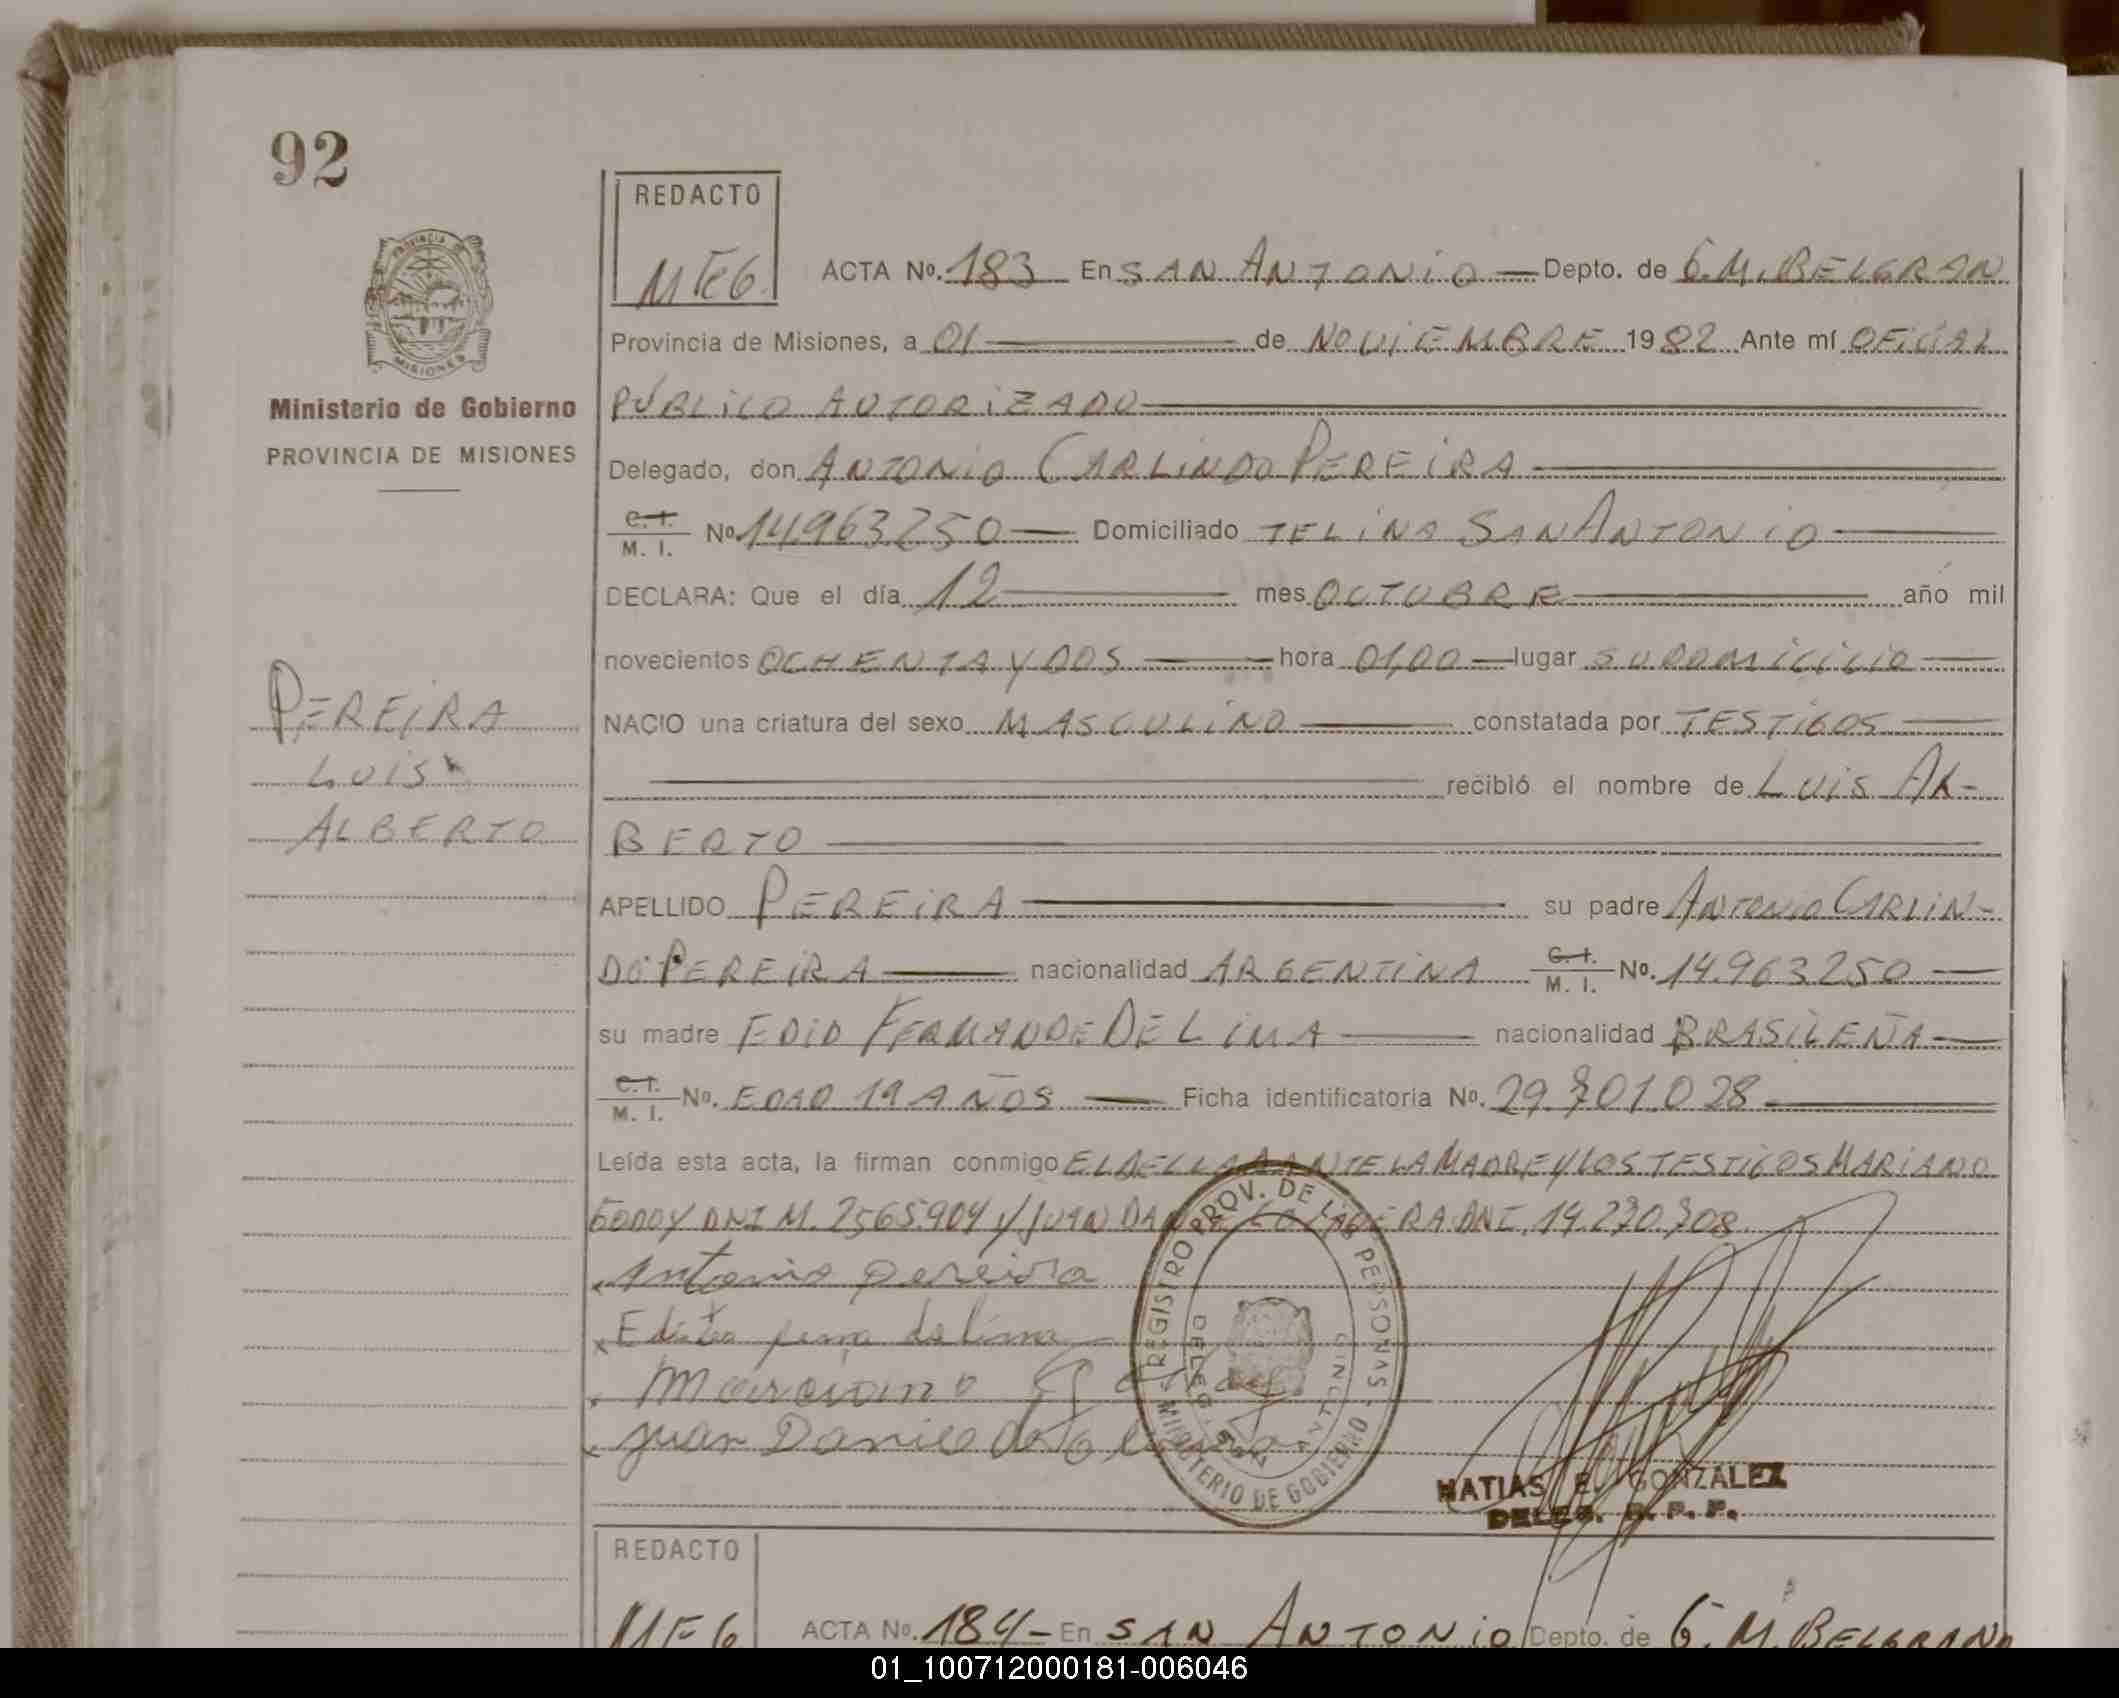 92
REDACTO
MEG
ACTA Nº. 183 En SAN ANTONIO Depto. de G.M. BELGRAN
Provincia de Misiones, a 01 de NOVIEMBRE 1982 Ante mí OFICIAL
Ministerio de Gobierno
PROVINCIA DE MISIONES
PÚBLICO AUTORIZADO
Delegado, don ANTONIO CARLINDO PEREIRA
C. I. M. I. Nº 14.963250 Domiciliado TELINA SAN ANTONIO
DECLARA: Que el día 12 mes OCTUBRE año mil
novecientos OCHENTA Y DOS hora 01,00 lugar SU DOMICILIO
PEREIRA
LUIS
ALBERTO
NACIO una criatura del sexo MASCULINO constatada por TESTIGOS
recibió el nombre de LUIS AL-
BERTO
APELLIDO PEREIRA su padre ANTONIO CARLIN-
DO PEREIRA nacionalidad ARGENTINA C. I. M. I. Nº. 14.963250
su madre EDID FERMANDE DE LIMA nacionalidad BRASILEÑA
C. I. M. I. Nº. EDAD 19 AÑOS Ficha identificatoria Nº. 29.701.028
Leída esta acta, la firman conmigo LA MADRE Y LOS TESTIGOS MARIANO
GODOY DNI M. 2565.904 Y JUAN DNI. 14.270.708
Antonio pereira
de lima
Juan
REGISTRO PROV. DE LAS PERSONAS
MINISTERIO DE GOBIERNO
DELEG. SAN ANTONIO
MATIAS E. GONZALEZ
DELEG. R. P. P.
REDACTO
MEG
ACTA Nº. 184 - En SAN ANTONIO Depto. de G. M. BELGRANO
01_100712000181-006046